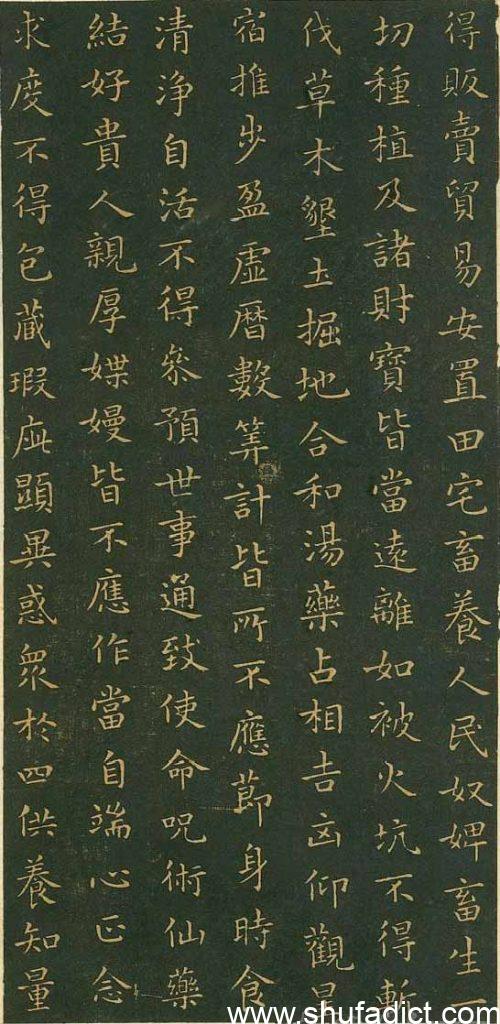 得販賣貿易安置田宅畜養人民奴婢畜生一
切種植及諸財寶皆當遠離如被火坑不得斬
伐草木墾土掘地合和湯藥占相吉凶仰觀星
宿推步盈虛曆數筭計皆所不應節身時食
清淨自活不得參預世事通致使命呪術仙藥
結好貴人親厚媟嫚皆不應作當自端心正念
求度不得包藏瑕疵顯異惑眾於四供養知量
www.shufadict.com